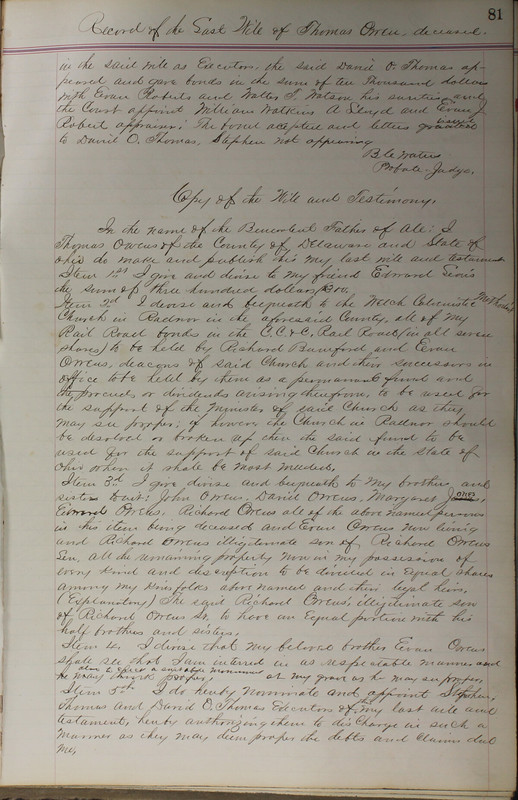 81
Record of the Last Will of Thomas Owen, deceased.
in the said will as Executors. the said David O. Thomas ap-
peared and gave bonds in the sum of ten Thousand dollars
with Evan Roberts and Walter T. Watson his sureties and
the Court appoint William Watkins A Lloyd and Evan J
Robert appraisers. The bond accepted and letters granted
issued
to David O. Thomas, Stephen not appearing
B. C. Waters
Probate Judge.
Copy of the Will and Testimony.
In the name of the Benevolent Father of All: I
Thomas Owens of the County of Delaware and State of
Ohio do make and publish this my last will and testament
Item 1st I give and devise to my friend Edward
the sum of three hundred dollars $300.
Item 2d I devise and bequeath to the Welch Calvinistic Methodist
Church in Radnor in the aforesaid County, all of my
Rail Road bonds in the C.C. & C. Rail Road (in all seven
shares) to be held by Richard Bumford and Evan
Owens, deacons of said Church and their successors in
office to be held by them as a permanent fund and
the proceeds or dividends arising therefrom, to be used for
the support of the Minister of said Church as they
may see proper; if however the Church in Radnor should
be desolved or broken up then the said fund to be
used for the support of said Church in the State of
Ohio when it shall be most needed.
Item 3rd I give devise and bequeath to my brothers and
sisters to wit: John Owens. David Owens, Margaret Jones,
Edward Owens. Richard Owens all of the above named persons
in this item being deceased and Evan Owens now living
and Richard Owens illegitimate son of Richard Owens
Sen, all the remaining property now in my possession of
every kind and description to be divided in Equal shares
among my kinsfolks above named and their legal heirs,
(Explanatory) The said Richard Owens, illegitimate son
of Richard Owens Sr. to have an Equal portion with his
half brothers and sisters,
Item 4. I devise that my beloved brother Evan Owens
shall see that I am interred in as respectable manner and
he may think proper, also to erect a suitable monument at my grave as he may see proper,
Item 5th I do hereby nominate and appoint Stephen
Thomas and David O. Thomas Executors of my last will and
testament, hereby authorizing them to discharge in such a
manner as they may deem proper the debts and claims due
me,